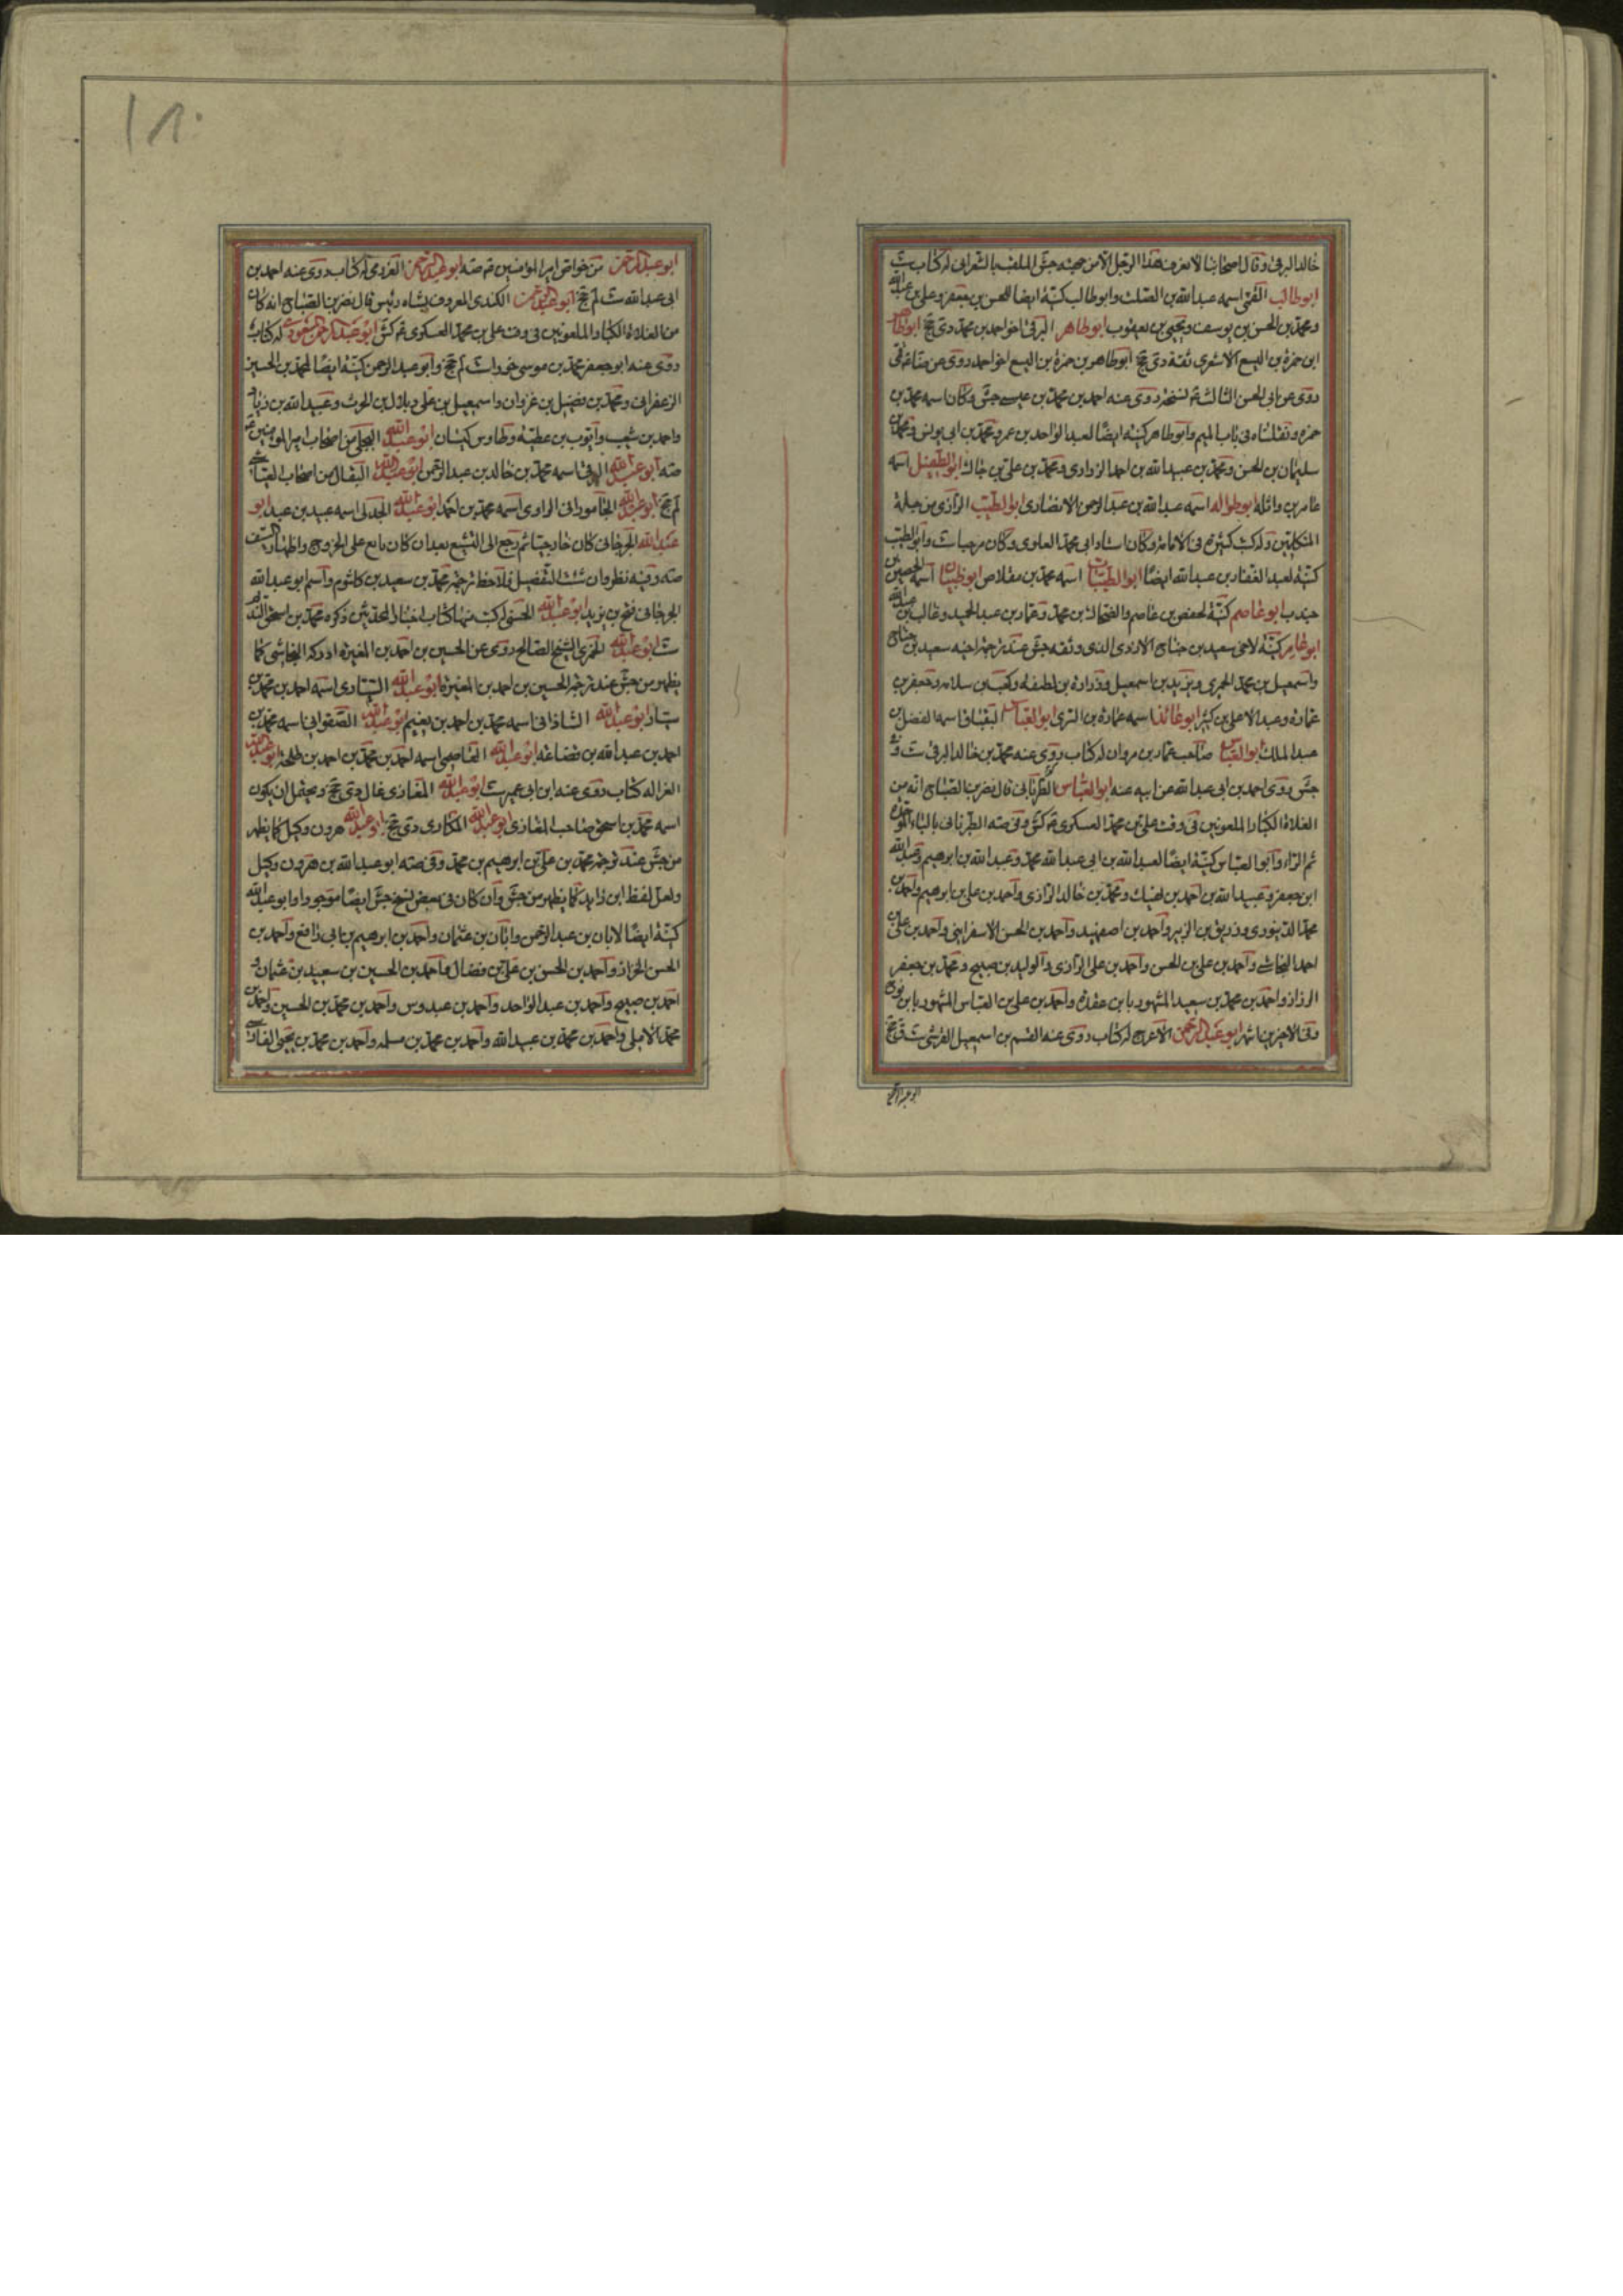 خالد البرقي وقال اصحابنا لا نعرف هذا الرجل الا من جهته جش الملقب بالشعراني له كتاب ست
ابو طالب القمي اسمه عبدالله بن الصلت وابو طالب كنية ايضا للحسن بن جعفر وعلي بن عبدالله
ومحمد بن الحسن بن يوسف ويحيى بن يعقوب ابو طاهر البرقي اخو احمد بن محمد دي جخ ابو طاهر
ابن حمزة بن اليسع الاشعري ثقة دي جخ ابو طاهر بن حمزة بن اليسع اخو احمد روى عن الرضا قمي
روى عن ابي الحسن الثالث نسخة روى عنه احمد بن محمد بن عيسى جش وكان اسمه محمد بن
حمزة ونقلناه في باب الميم وابو طاهر كنية ايضا لعبد الواحد بن عمر ومحمد بن ابي يونس ومحمد بن
سليمان بن الحسن ومحمد بن عبيد الله بن احمد الزراري ومحمد بن علي بن جاك ابو الطفيل اسمه
عامر بن واثلة ابو طوالة اسمه عبدالله بن عبد الرحمن الانصاري ابو الطيب الرازي من جلة
المتكلمين وله كتب كثيرة في الامامة وكان استاد ابي محمد العلوي وكان مرجيا ست وابو الطيب
كنية لعبد الغفار بن عبدالله ايضا ابو الطيبات اسمه محمد بن مقلاص ابو ظبيان اسمه الحصين بن
جندب ابو عاصم كنية لحفص بن عاصم والضحاك بن محمد وعمار بن عبد الحميد وغالب بن عبدالله
ابو عامر كنية لاخي سعيد بن جناح الازدي الذي وثقه جش عند ترجمة اخيه سعيد بن جناح
واسمعيل بن محمد الحميري ويزيد بن اسمعيل وزرارة بن لطيفة وكعب بن سلامة وجعفر بن
عمارة وعبد الاعلى بن كثير ابو عائذ اسمه عمارة بن الثري ابو العباس البقباق اسمه الفضل بن
عبد الملك ابو العباس صاحب عمار بن مروان له كتاب روى عنه محمد بن خالد البرقي ست و
جش روى احمد بن ابي عبد الله عن ابيه عنه ابو العباس الطرناني قال نصر بن الصباح انه من
الغلاة الكبار الملعونين في وقت علي بن محمد العسكري كش وفي صه الطبرناني بالباء الموحدة
ثم الراء وابو العباس كنية ايضا لعبد الله بن ابي عبد الله محمد وعبد الله بن ابرهيم وعبد الله
ابن جعفر وعبيد الله بن احمد بن نهيك ومحمد بن خالد الرازي واحمد بن علي بن ابرهيم واحمد بن
محمد الدينوري وزريق بن الزبير واحمد بن اصفهبد واحمد بن الحسن الاسفرايني واحمد بن علي بن
احمد النجاشي واحمد بن علي بن الحسن واحمد بن علي الرازي والوليد بن صبيح ومحمد بن جعفر
الرزاز واحمد بن محمد بن سعيد المشهور بابن عقدة واحمد بن علي بن العباس المشهور بابن نوح
وفي الاخيرين اشهر ابو عبد الرحمن الاعرج له كتاب روى عنه القسم بن اسمعيل القرشي ست
ابو عبد الرحمن
ابو عبد الرحمن من خواص امير المؤمنين صه ابو عبد الرحمن العرزمي له كتاب روى عنه احمد بن
ابي عبد الله ست لم جخ ابو عبد الرحمن الكندي المعروف بشاه رئيس قال نصر بن الصباح انه كان
من الغلاة الكبار الملعونين في وقت علي بن محمد العسكري كش ابو عبد الرحمن المسعودي له كتاب
روى عنه ابو جعفر محمد بن موسى خوراء ست لم جخ وابو عبد الرحمن كنية ايضا لمحمد بن الحسين
الزعفراني ومحمد بن فضيل بن غزوان واسمعيل بن علي وبلال بن الحرث وعبيد الله بن زياد
واحمد بن شعيب وايوب بن عطية وطاوس كيسان ابو عبد الله البجلي من اصحاب امير المؤمنين
صه ابو عبد الله البرقي اسمه محمد بن خالد بن عبد الرحمن ابو عبد الله البقال من اصحاب العياشي
لم جخ ابو عبد الله الجاموراني الرازي اسمه محمد بن احمد ابو عبد الله الجدلي اسمه عبيد بن عبد ابو
عبد الله الجرجاني كان خارجيا ثم رجع الى التشيع بعد ان كان بايع على الخروج واظهار السيف
صه وفيه نظر وان شئت التفصيل فلاحظ ترجمة محمد بن سعيد بن كلثوم واسم ابو عبد الله
الجرجاني فتح بن يزيد ابو عبد الله الحسني له كتب منها كتاب اخبار المحدثين ذكره محمد بن اسحق النديم
ست ابو عبد الله الخمري الشيخ الصالح روى عن الحسين بن احمد بن المغيرة ادركه النجاشي كما
يظهر من جش عند ترجمة الحسين بن احمد بن المغيرة ابو عبد الله السياري اسمه احمد بن محمد بن
سيار ابو عبد الله الشاذاني اسمه محمد بن احمد بن نعيم ابو عبد الله الصفواني اسمه محمد بن
احمد بن عبد الله بن قضاعة ابو عبد الله العاصمي اسمه احمد بن محمد بن احمد بن طلحة ابو عبد الله
الفراء له كتاب روى عنه ابن ابي عمير ست ابو عبد الله المغازي غال دي جخ ويحتمل ان يكون
اسمه محمد بن اسحق صاحب المغازي ابو عبد الله المكاري دي جخ ابو عبد الله هرون وكيل كما يظهر
من جش عند ترجمة محمد بن علي بن ابرهيم بن محمد وفي صه ابو عبد الله بن هرون وكيل
ولعل لفظ ابن زايد كما يظهر من جش وان كان في بعض نسخ جش ايضا موجودا وابو عبد الله
كنية ايضا لابان بن عبد الرحمن وابان بن عثمان واحمد بن ابرهيم بن ابي رافع واحمد بن
الحسن الخزاز واحمد بن الحسن بن علي بن فضال واحمد بن الحسين بن سعيد بن عثمان و
احمد بن صبيح واحمد بن عبد الواحد واحمد بن عبدوس واحمد بن محمد بن الحسين واحمد بن
محمد الاملي واحمد بن محمد بن عبيد الله واحمد بن محمد بن مسلمة واحمد بن محمد بن يحيى الفارسي